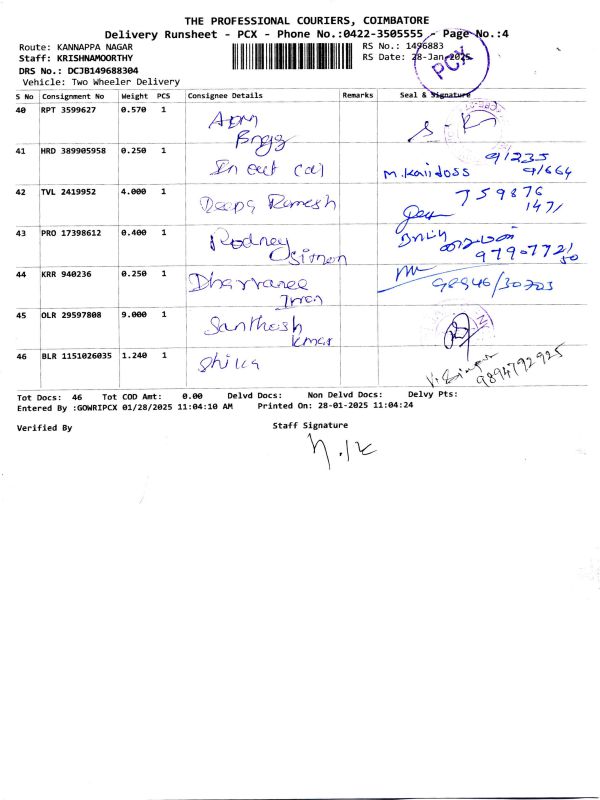 THE PROFESSIONAL COURIERS, COIMBATORE
Delivery Runsheet - PCX - Phone No.:0422-3505555 - Page No.:4
Route: KANNAPPA NAGAR
RS No.: 1496883
Staff: KRISHNAMOORTHY
RS Date: 28-Jan-2025
PCX
DRS No.: DCJB149688304
Vehicle: Two Wheeler Delivery
S No Consignment No Weight PCS Consignee Details Remarks Seal & Signature
40 RPT 3599627 0.570 1
41 HRD 389905958 0.250 1 In out Car M. Kaidoss 91235 91664
42 TVL 2419952 4.000 1 Deepa Ramesh 759876
1471
43 PRO 17398612 0.400 1 Rodney
Simon 9790772150
44 KRR 940236 0.250 1 Dharranee 98946/30703
45 OLR 29597808 9.000 1 Santhosh
kmar
46 BLR 1151026035 1.240 1 9894792925
Tot Docs: 46 Tot COD Amt: 0.00 Delvd Docs: Non Delvd Docs: Delvy Pts:
Entered By :GOWRIPCX 01/28/2025 11:04:10 AM Printed On: 28-01-2025 11:04:24
Verified By Staff Signature